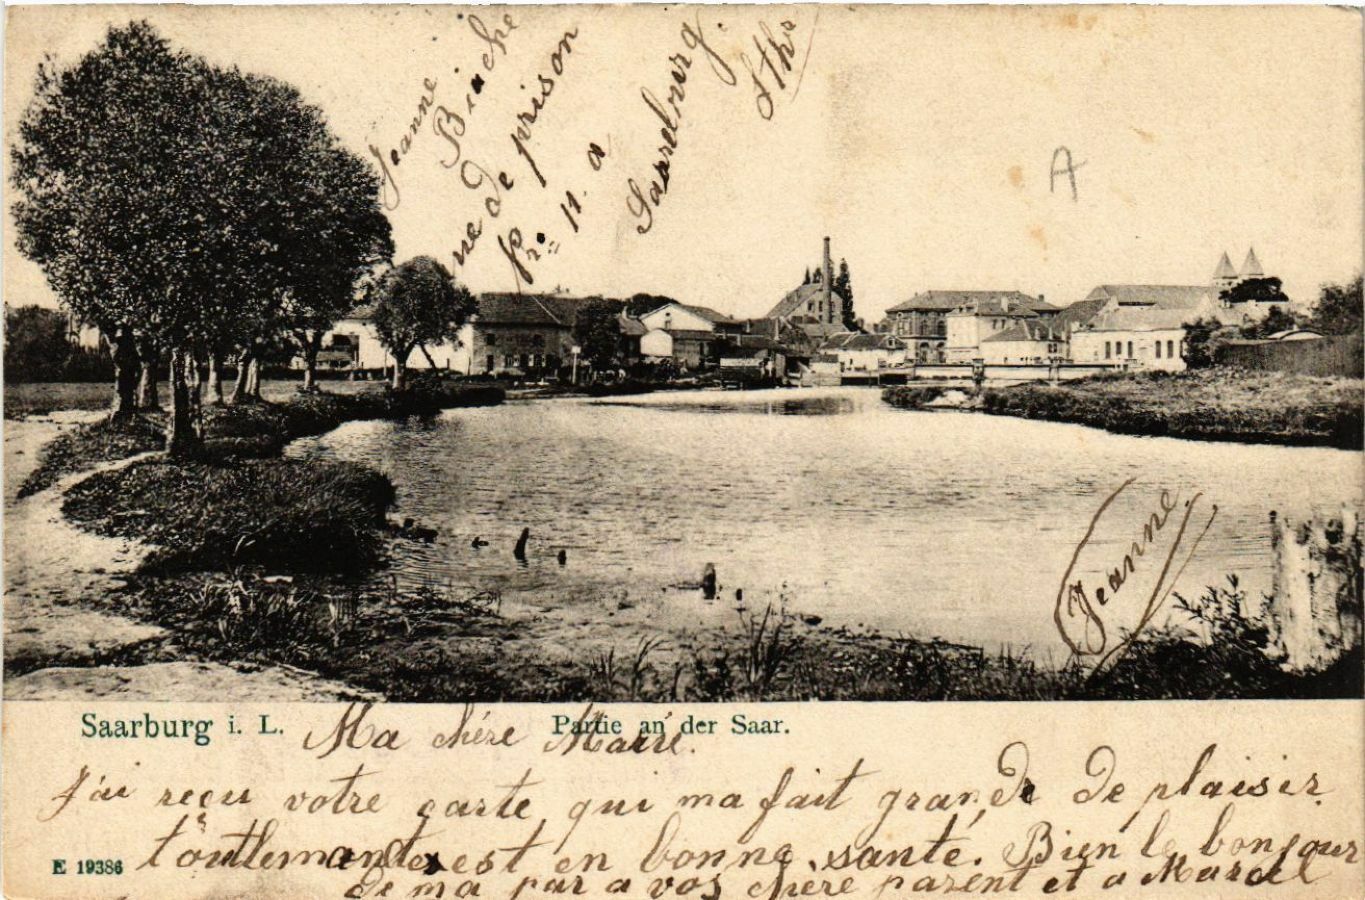 Jeanne
Biache
rue de prison
Nr. 11. a
Saarelbourg.
A
Jeanne
Saarburg i. L.
Partie an der Saar.
Ma chére Marie.
J'ai reçu votre carte qui ma fait grande de plaisir
toutlemonde est en bonne santé. Bien le bonjour
de ma par a vos chere parent et a Marcel
E 19386